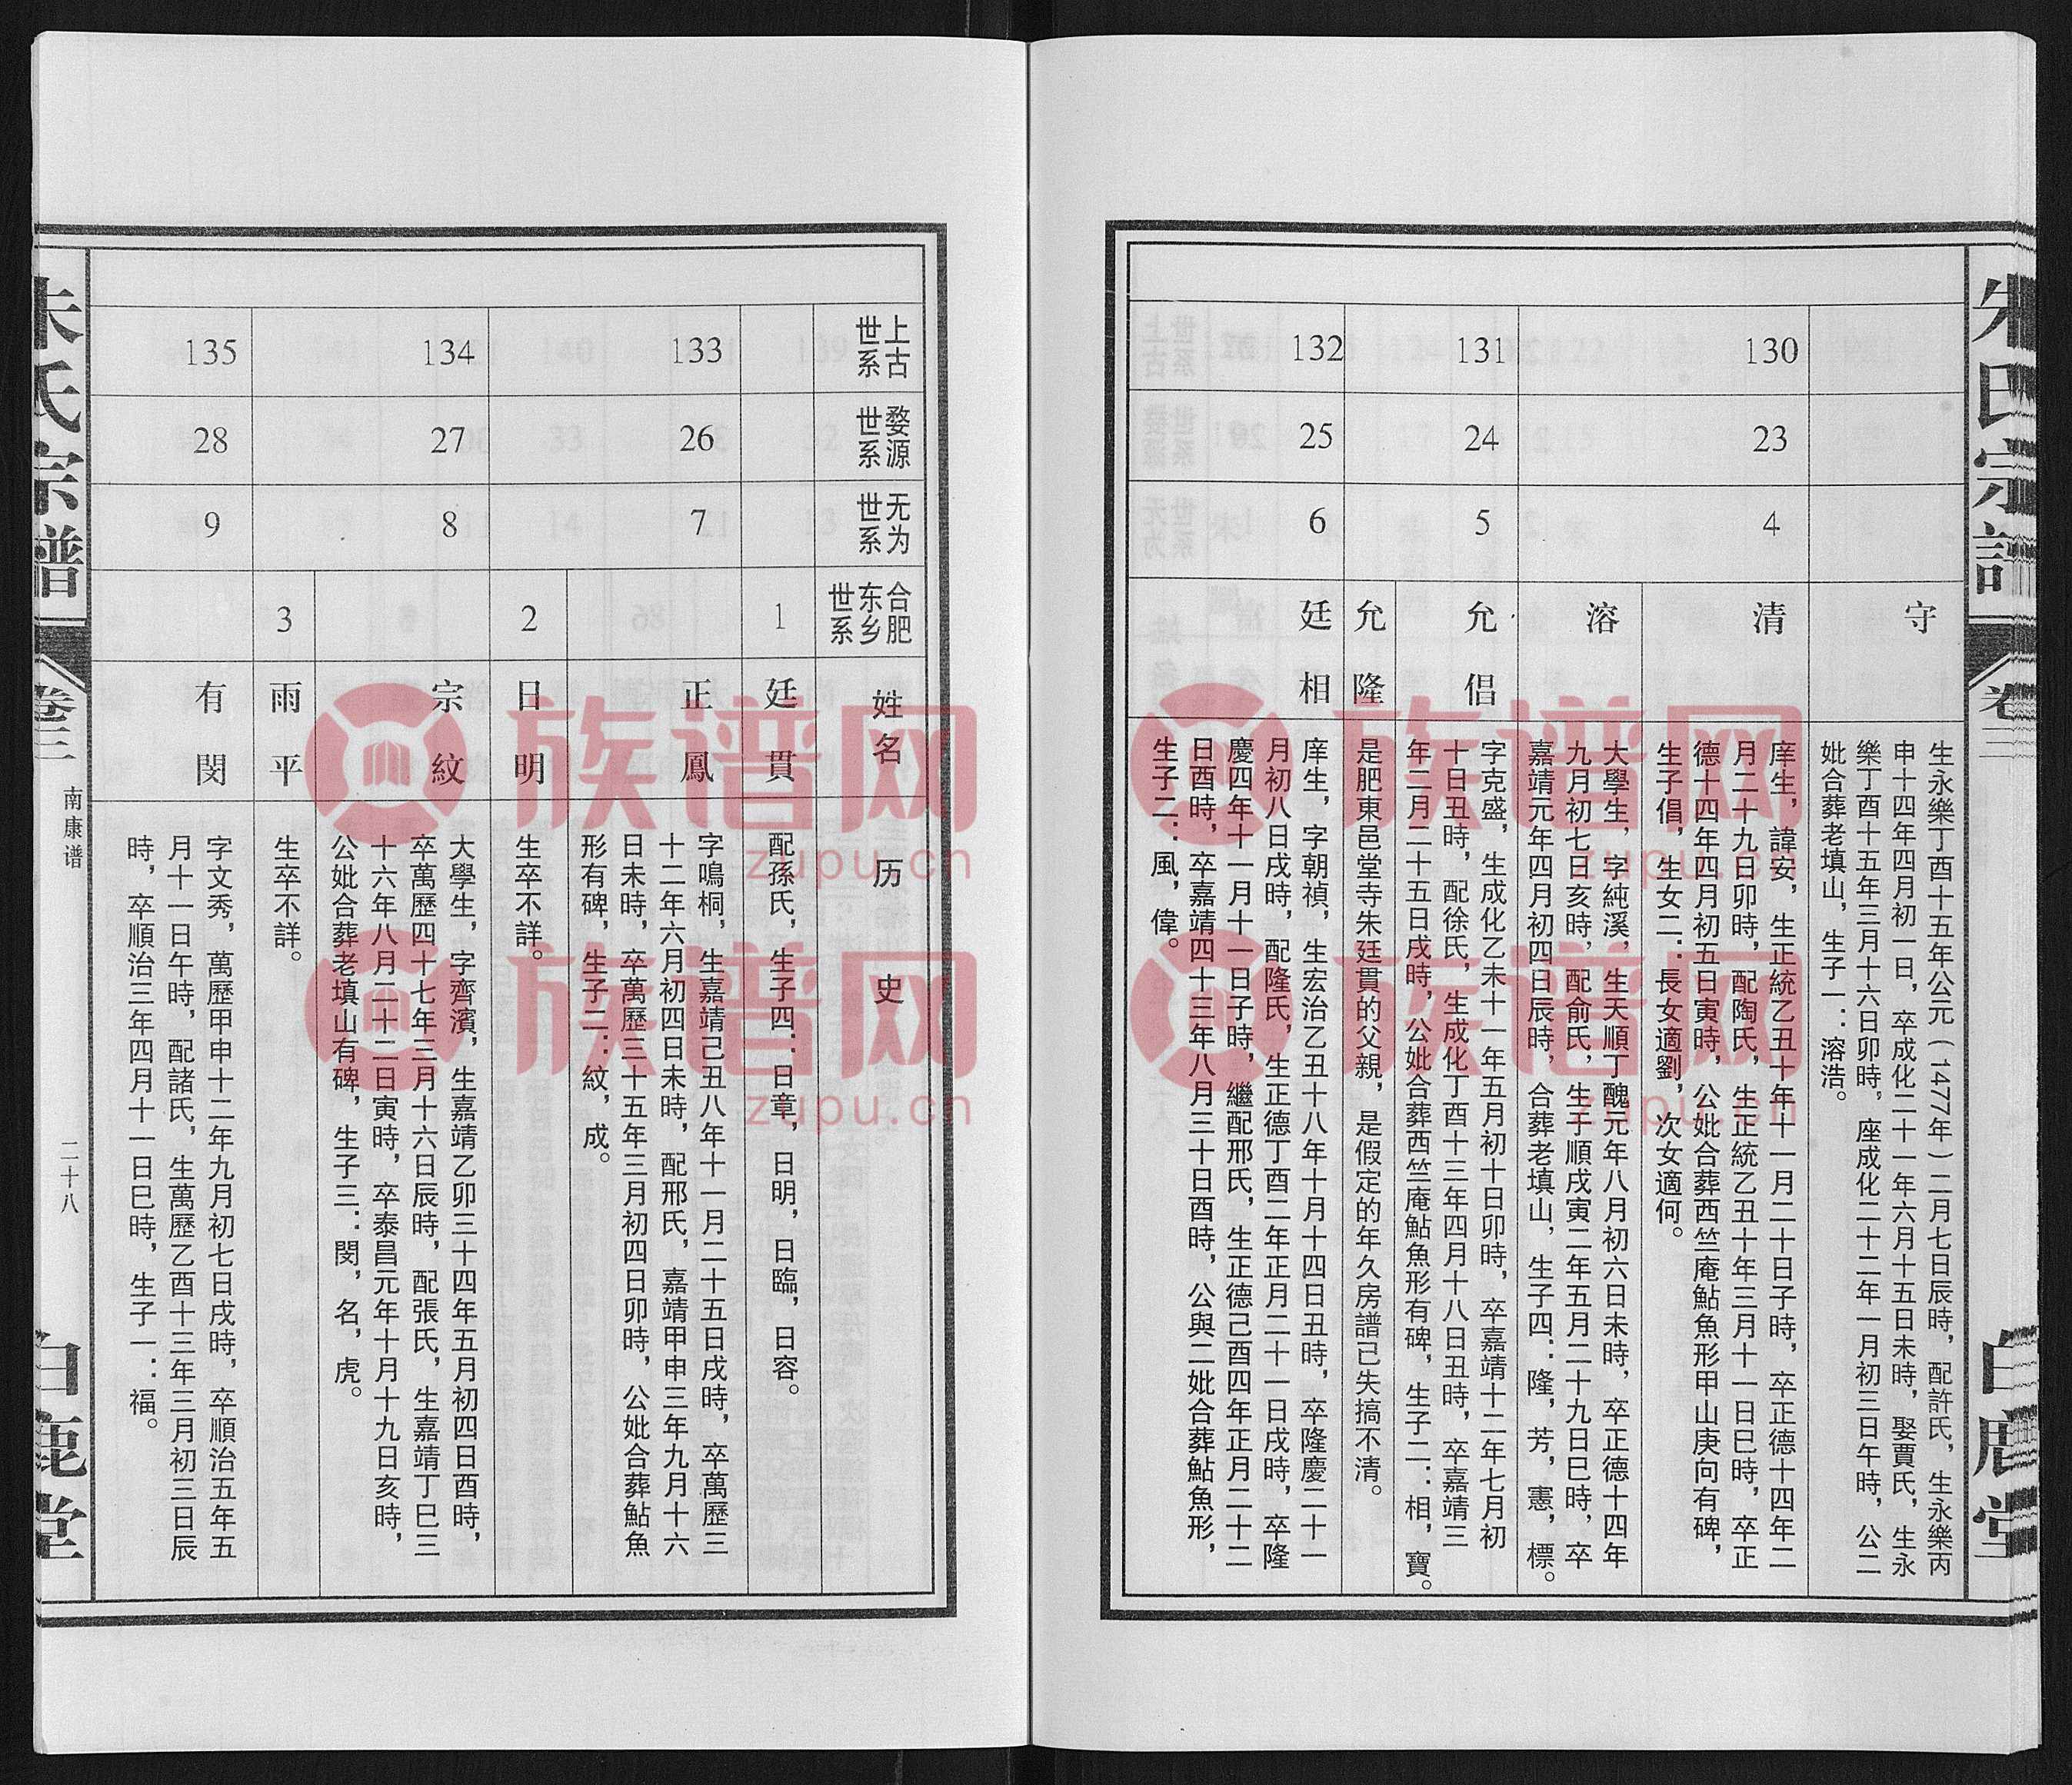 朱氏宗譜
卷三
白鹿堂
守
生永樂丁酉十五年公元(1477年)二月七日辰時，配許氏，生永樂丙
申十四年四月初一日，卒成化二十一年六月十五日未時，娶賈氏，生永
樂丁酉十五年三月十六日卯時，座成化二十二年一月初三日午時，公二
妣合葬老填山，生子一：溶浩。
130
23
4
清
庠生，諱安，生正統乙丑十年十一月二十日子時，卒正德十四年二
月二十九日卯時，配陶氏，生正統乙丑十年三月十一日巳時，卒正
德十四年四月初五日寅時，公妣合葬西竺庵鮎魚形甲山庚向有碑，
生子倡，生女二：長女適劉，次女適何。
溶
大學生，字純溪，生天順丁醜元年八月初六日未時，卒正德十四年
九月初七日亥時，配俞氏，生子順戌寅二年五月二十九日巳時，卒
嘉靖元年四月初四日辰時，合葬老填山，生子四：隆，芳，憲，標。
131
24
5
允倡
字克盛，生成化乙未十一年五月初十日卯時，卒嘉靖十二年七月初
十日丑時，配徐氏，生成化丁酉十三年四月十八日丑時，卒嘉靖三
年二月二十五日戌時，公妣合葬西竺庵鮎魚形有碑，生子二：相，寶。
允隆
是肥東邑堂寺朱廷貫的父親，是假定的年久房譜已失搞不清。
132
25
6
廷相
庠生，字朝禎，生宏治乙丑十八年十月十四日丑時，卒隆慶二十一
月初八日戌時，配隆氏，生正德丁酉二年正月二十一日戌時，卒隆
慶四年十一月十一日子時，繼配邢氏，生正德己酉四年正月二十二
日酉時，卒嘉靖四十三年八月三十日酉時，公與二妣合葬鮎魚形，
生子二：風，偉。
上古世系
婺源世系
无为世系
合肥东乡世系
姓名
历史
1
廷貫
配孫氏，生子四：日章，日明，日臨，日容。
133
26
7
正鳳
字鳴桐，生嘉靖己丑八年十一月二十五日戌時，卒萬歷三
十二年六月初四日未時，配邢氏，嘉靖甲申三年九月十六
日未時，卒萬歷三十五年三月初四日卯時，公妣合葬鮎魚
形有碑，生子二：紋，成。
2
日明
生卒不詳。
134
27
8
宗紋
大學生，字齊濱，生嘉靖乙卯三十四年五月初四日酉時，
卒萬歷四十七年三月十六日辰時，配張氏，生嘉靖丁巳三
十六年八月二十二日寅時，卒泰昌元年十月十九日亥時，
公妣合葬老填山有碑，生子三：閔，名，虎。
3
雨平
生卒不詳。
135
28
9
有閔
字文秀，萬歷甲申十二年九月初七日戌時，卒順治五年五
月十一日午時，配諸氏，生萬歷乙酉十三年三月初三日辰
時，卒順治三年四月十一日巳時，生子一：福。
朱氏宗譜
卷三
南康谱
二十八
白鹿堂
族谱网
zupu.cn
族谱网
zupu.cn
族谱网
zupu.cn
族谱网
zupu.cn